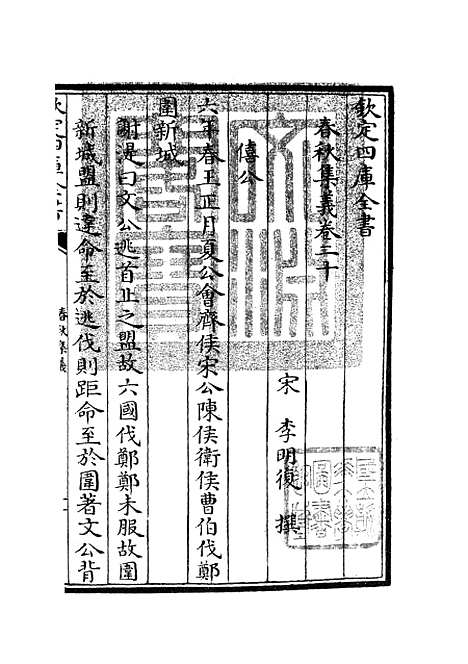 欽定四庫全書
春秋集義卷三十
宋 李明復 撰
僖公
六年春王正月夏公會齊侯宋公陳侯衛侯曹伯伐鄭
圍新城
謝湜曰文公逃首止之盟故六國伐鄭鄭未服故圍
新城盟則違命至於逃伐則距命至於圍著文公背
春秋集義